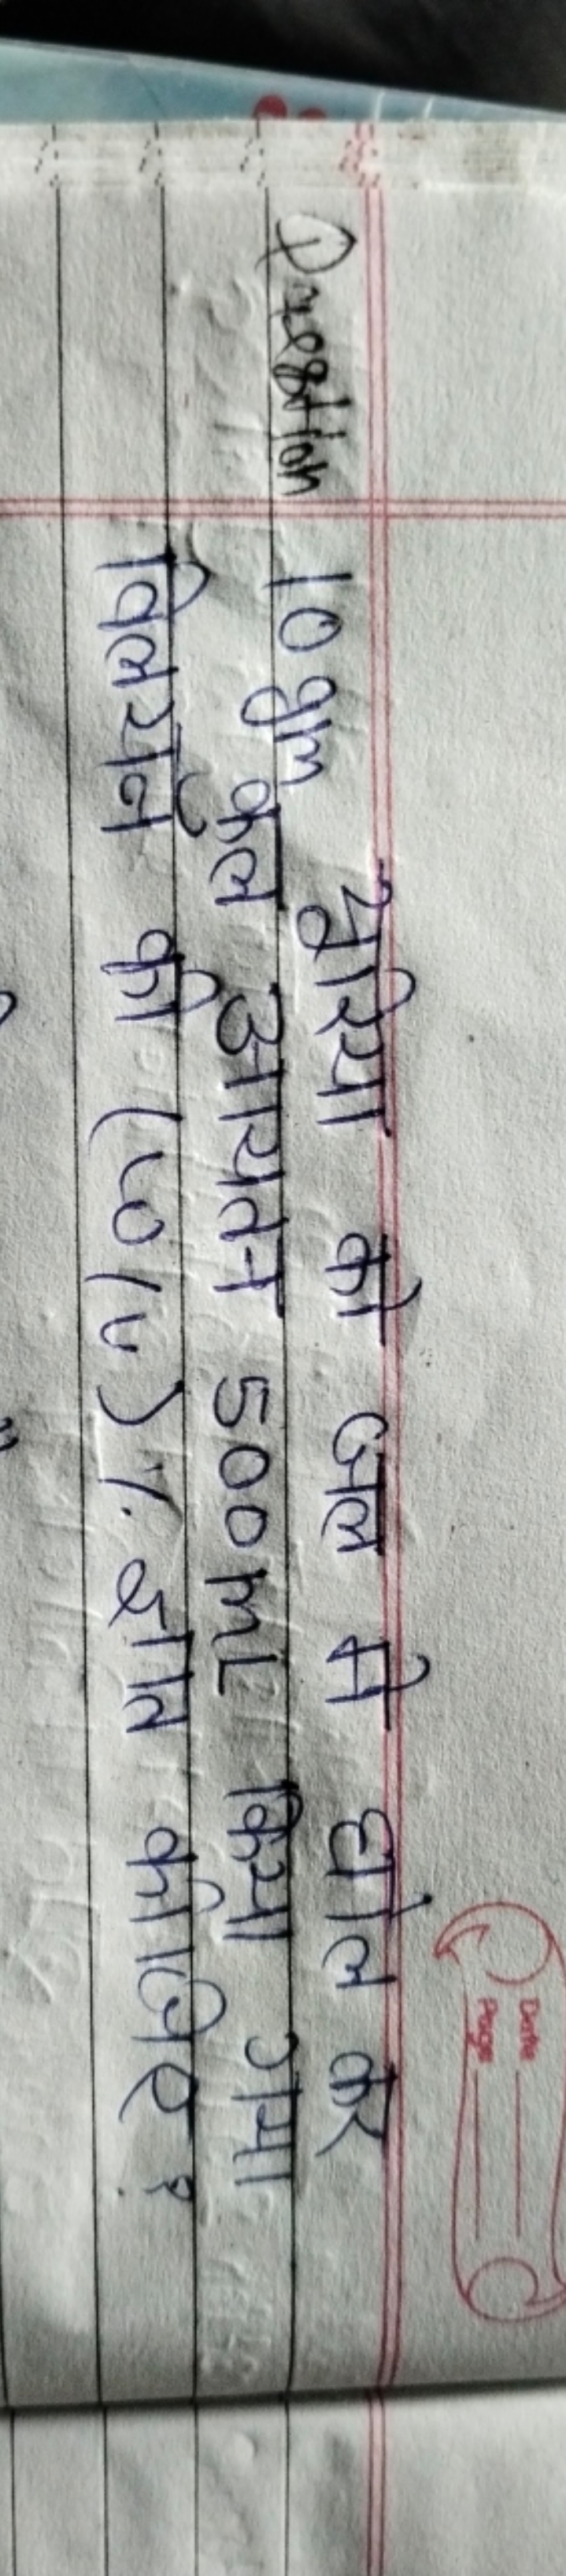 Date
Page
Question 10 gm यूरिया को जल मे घोल कर
कुल आयतन 500 mL किया गया
विलयन की (w/v) % ज्ञात कीजिए?